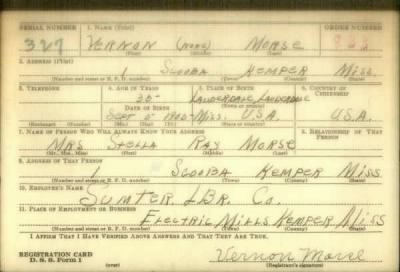 SERIAL NUMBER 1. NAME (Print) ORDER NUMBER
327 VERNON (NONE) MORSE
(First) (Middle) (Last)
2. ADDRESS (Print)
SCOOBA KEMPER MISS.
(Number and street or R. F. D. number) (Town) (County) (State)
3. TELEPHONE 4. AGE IN YEARS 5. PLACE OF BIRTH 6. COUNTRY OF CITIZENSHIP
35 LAUDERDALE LAUDERDALE
DATE OF BIRTH (Town) (County)
SEPT MISS. U.S.A. U.S.A.
(Exchange) (Number) (Mo.) (Day) (Yr.) (State) (Country)
7. NAME OF PERSON WHO WILL ALWAYS KNOW YOUR ADDRESS 8. RELATIONSHIP OF THAT PERSON
MRS STELLA RAY MORSE
(Mr., Mrs., Miss) (First) (Middle) (Last)
9. ADDRESS OF THAT PERSON
SCOOBA KEMPER MISS
(Number and street or R. F. D. number) (Town) (County) (State)
10. EMPLOYER'S NAME
SUMTER LBR. CO.
11. PLACE OF EMPLOYMENT OR BUSINESS
ELECTRIC MILLS KEMPER MISS
(Number and street or R. F. D. number) (Town) (County) (State)
I AFFIRM THAT I HAVE VERIFIED ABOVE ANSWERS AND THAT THEY ARE TRUE.
REGISTRATION CARD
D. S. S. Form 1 (over) Vernon Morse
(Registrant's signature)